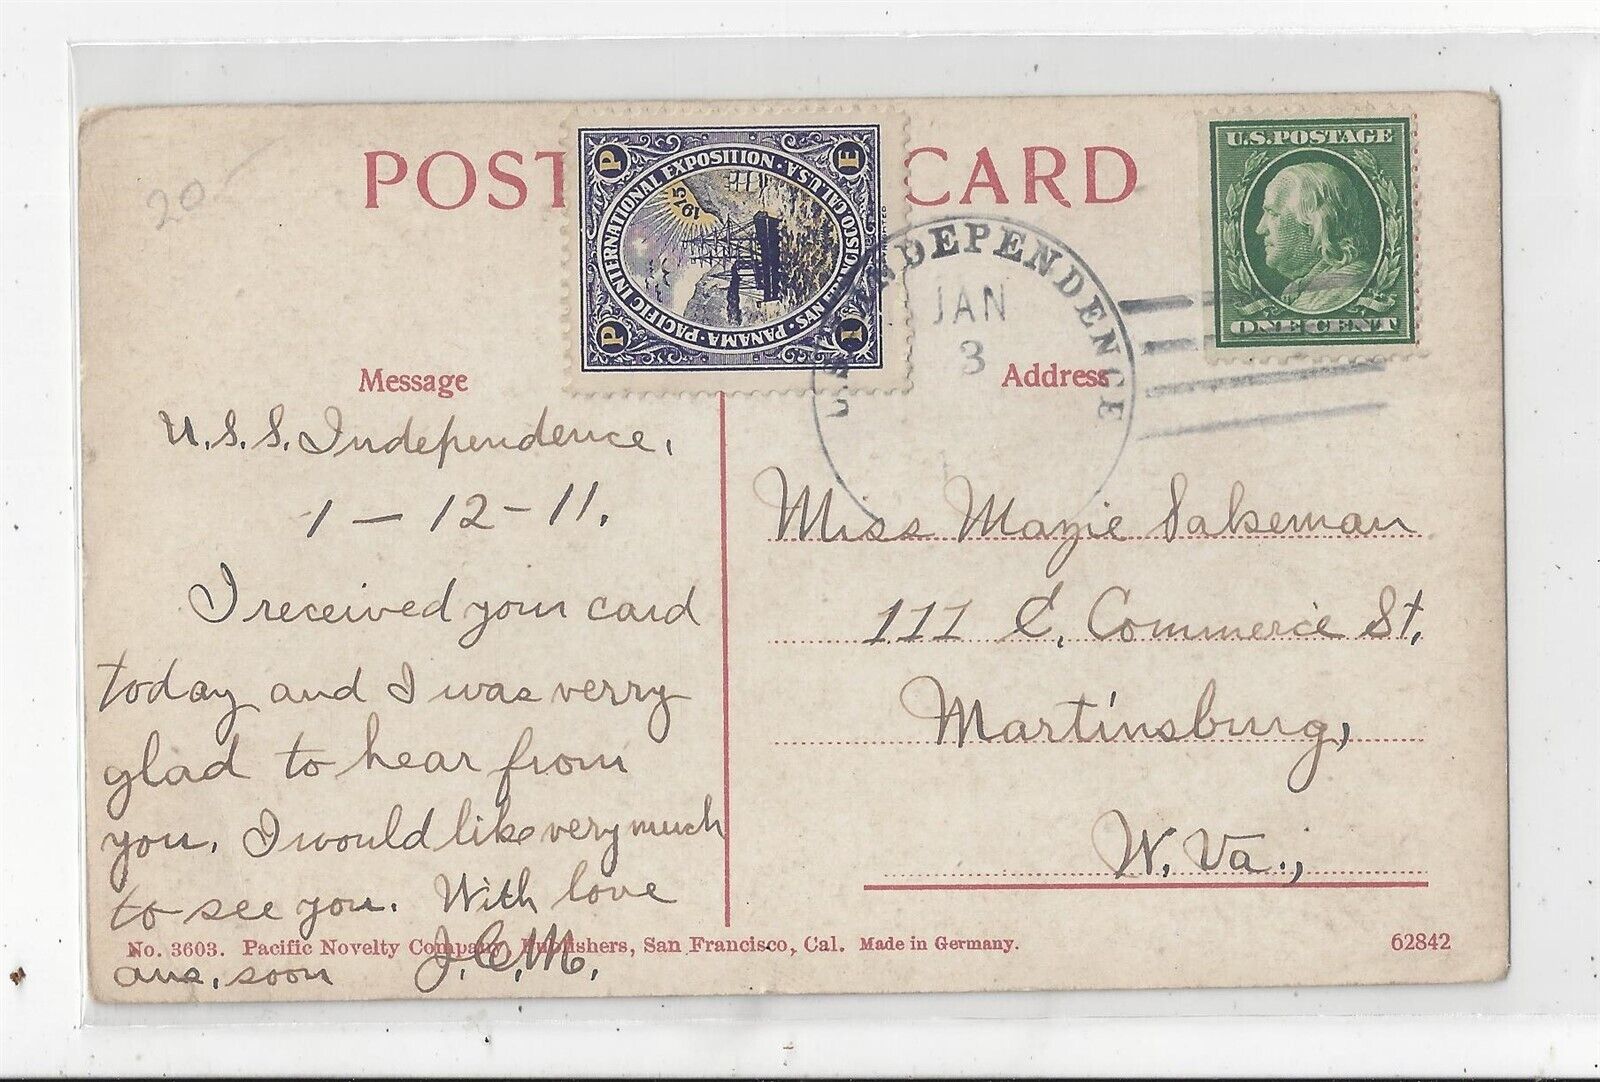 20-
POST CARD
PANAMA-PACIFIC INTERNATIONAL EXPOSITION · SAN FRANCISCO, CAL. U.S.A.
1915
P P I E
U.S. POSTAGE
ONE CENT
U.S.S. INDEPENDENCE
JAN
3
Message
U.S.S. Independence,
1 – 12 – 11.
I received your card
today and I was verry
glad to hear from
you. I would like very much
to see you. With love
ans. soon J.C.M.
Address
Miss Mazie Sakeman
111 E. Commerce St.
Martinsburg,
W. Va.,
No. 3603. Pacific Novelty Company, Publishers, San Francisco, Cal. Made in Germany.
62842